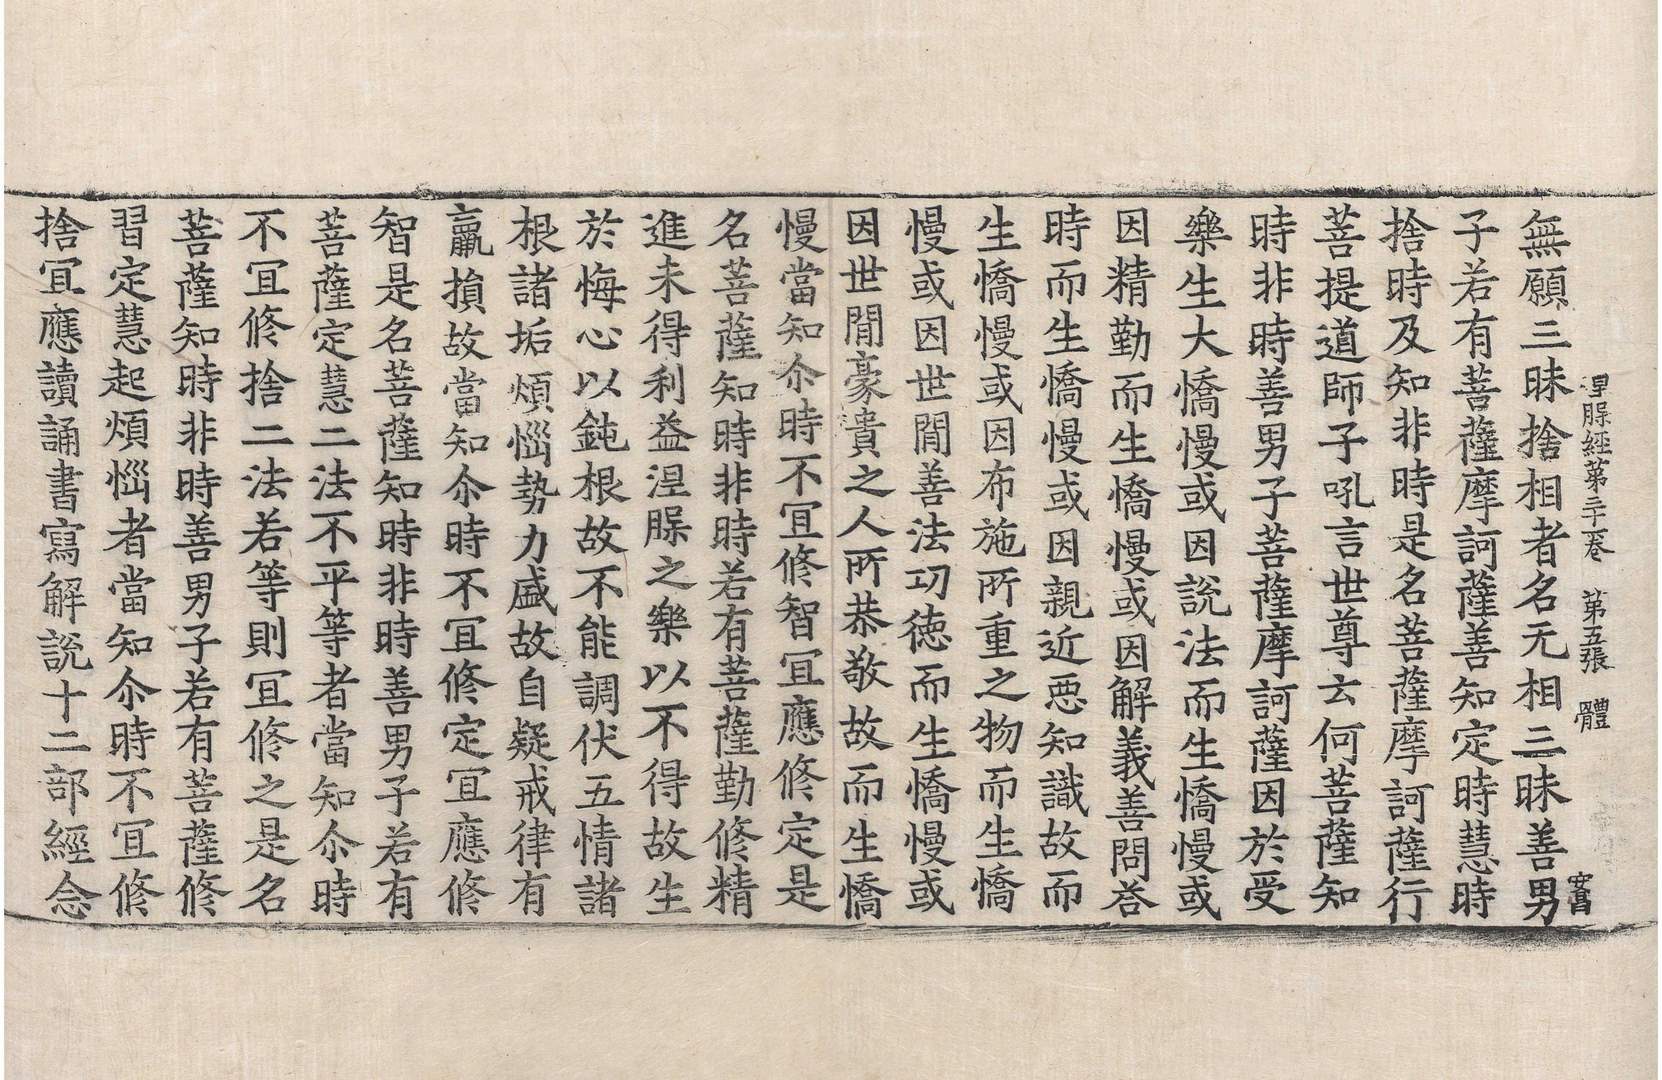 涅槃經第三十一卷 第五張 體
無願三昧捨相者名无相三昧善男
子若有菩薩摩訶薩善知定時慧時
捨時及知非時是名菩薩摩訶薩行
菩提道師子吼言世尊云何菩薩知
時非時善男子菩薩摩訶薩因於受
樂生大憍慢或因說法而生憍慢或
因精勤而生憍慢或因解義善問荅
時而生憍慢或因親近惡知識故而
生憍慢或因布施所重之物而生憍
慢或因世閒善法功德而生憍慢或
因世閒豪貴之人所恭敬故而生憍
慢當知尒時不宜修智宜應修定是
名菩薩知時非時若有菩薩勤修精
進未得利益涅槃之樂以不得故生
於悔心以鈍根故不能調伏五情諸
根諸垢煩惱勢力盛故自疑戒律有
羸損故當知尒時不宜修定宜應修
智是名菩薩知時非時善男子若有
菩薩定慧二法不平等者當知尒時
不宜修捨二法若等則宜修之是名
菩薩知時非時善男子若有菩薩修
習定慧起煩惱者當知尒時不宜修
捨宜應讀誦書寫解說十二部經念